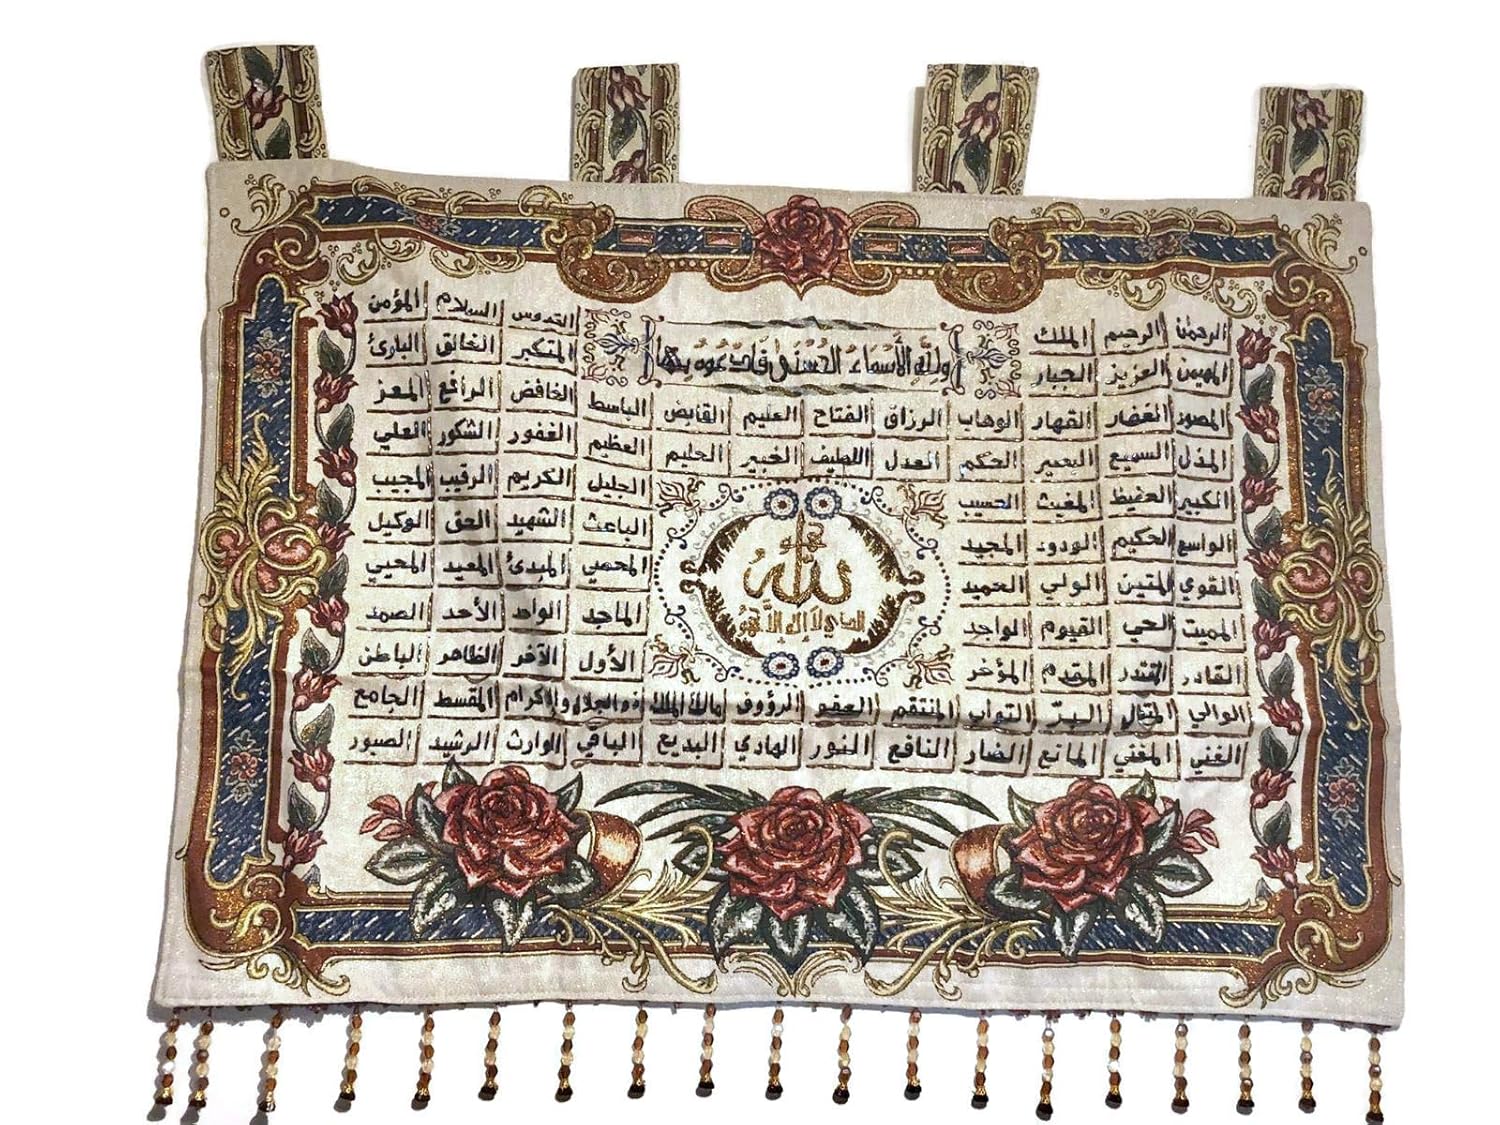 ولله الأسماء الحسنى فادعوه بها
الرحمن الرحيم الملك القدوس السلام المؤمن
المهيمن العزيز الجبار المتكبر الخالق البارئ
المصور الغفار القهار الوهاب الرزاق الفتاح العليم القابض الباسط الخافض الرافع المعز
المذل السميع البصير الحكم العدل اللطيف الخبير الحليم العظيم الغفور الشكور العلي
الكبير الحفيظ المغيث الحسيب الجليل الكريم الرقيب المجيب
الواسع الحكيم الودود المجيد الباعث الشهيد الحق الوكيل
القوي المتين الولي الحميد المحصي المبدئ المعيد المحيي
المميت الحي القيوم الواجد الماجد الواحد الأحد الصمد
القادر المقتدر المقدم المؤخر الأول الآخر الظاهر الباطن
الوالي المتعال البرّ التواب المنتقم العفو الرؤوف مالك الملك ذو الجلال والاكرام المقسط الجامع
الغني المغني المانع الضار النافع النور الهادي البديع الباقي الوارث الرشيد الصبور
هو
الله
الذي لا إله إلا هو